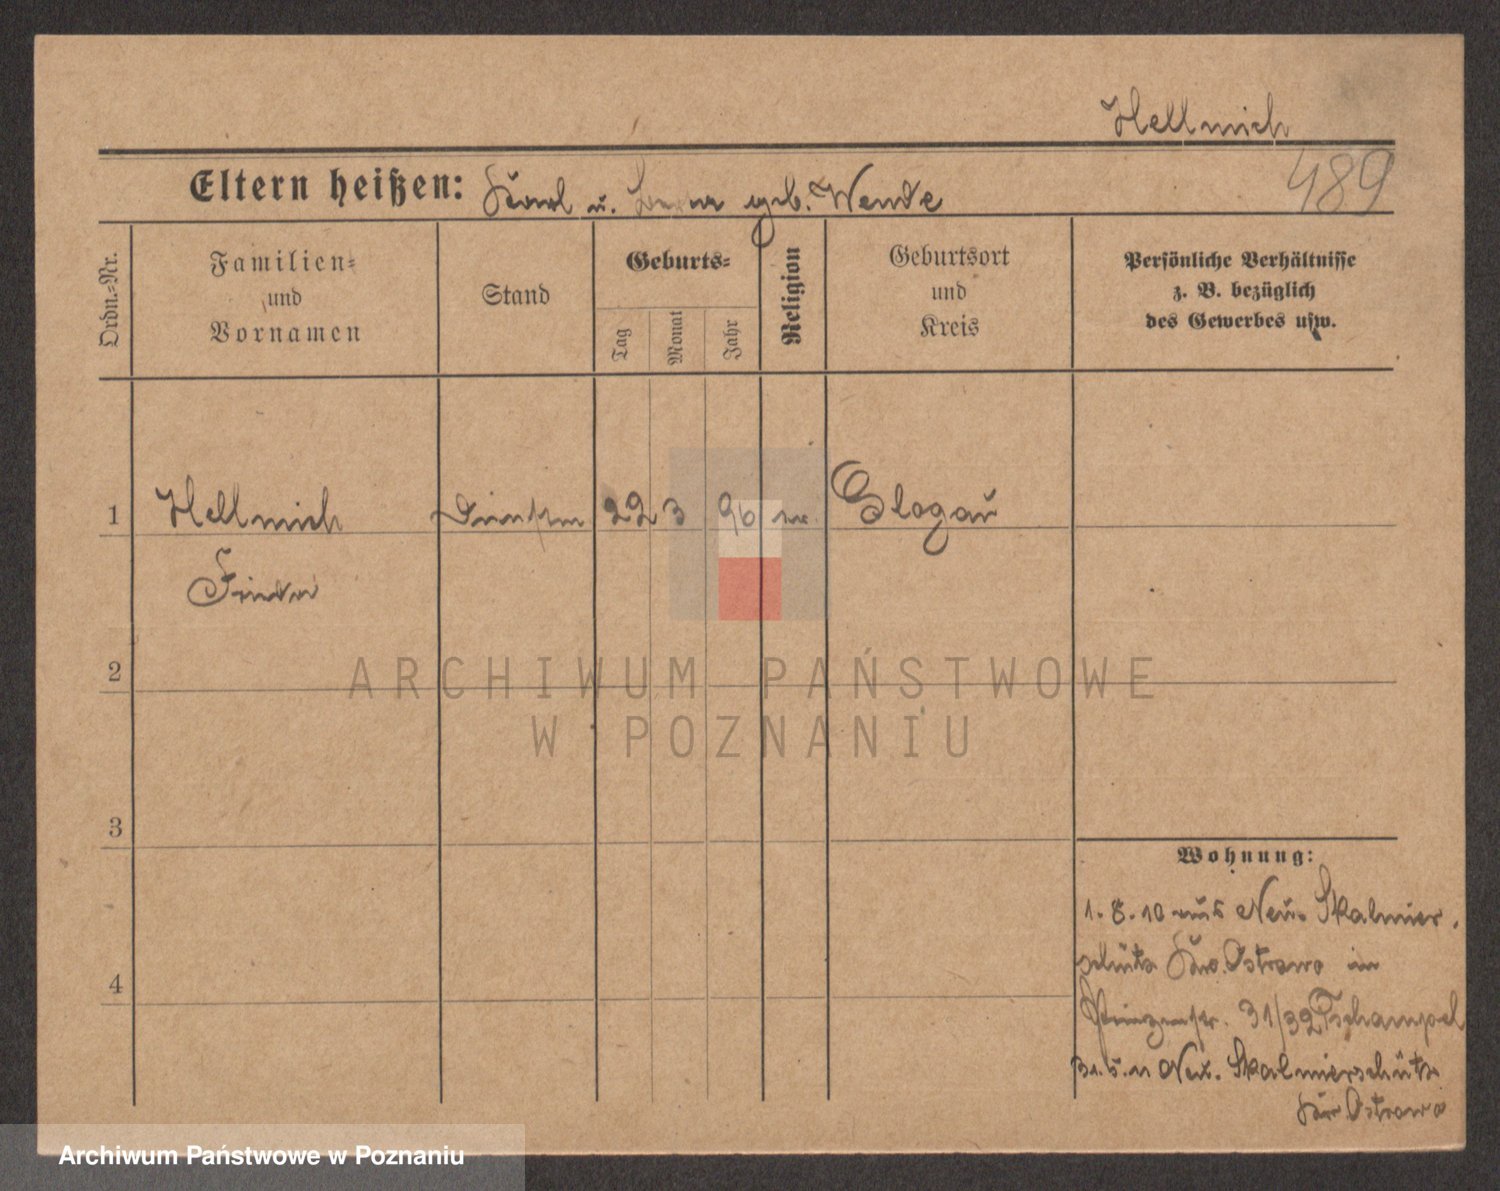 Hellmich
489
Eltern heißen: Karl u. geb. Wende
Ordn.-Nr.
Familien-
und
Vornamen
Stand
Geburts-
Tag
Monat
Jahr
Religion
Geburtsort
und
Kreis
Persönliche Verhältnisse
z. B. bezüglich
des Gewerbes usw.
1 Hellmich 22 3 90 Glogau
Frieda
2
3
4
Wohnung:
1.8.10 aus Neu Skalmier-
schütz Kr. Ostrowo in
Prinzenstr. 31/32 Tschampel
31.5.11 Neu. Skalmierschütz
Kr Ostrowo
ARCHIWUM PAŃSTWOWE
W POZNANIU
Archiwum Państwowe w Poznaniu